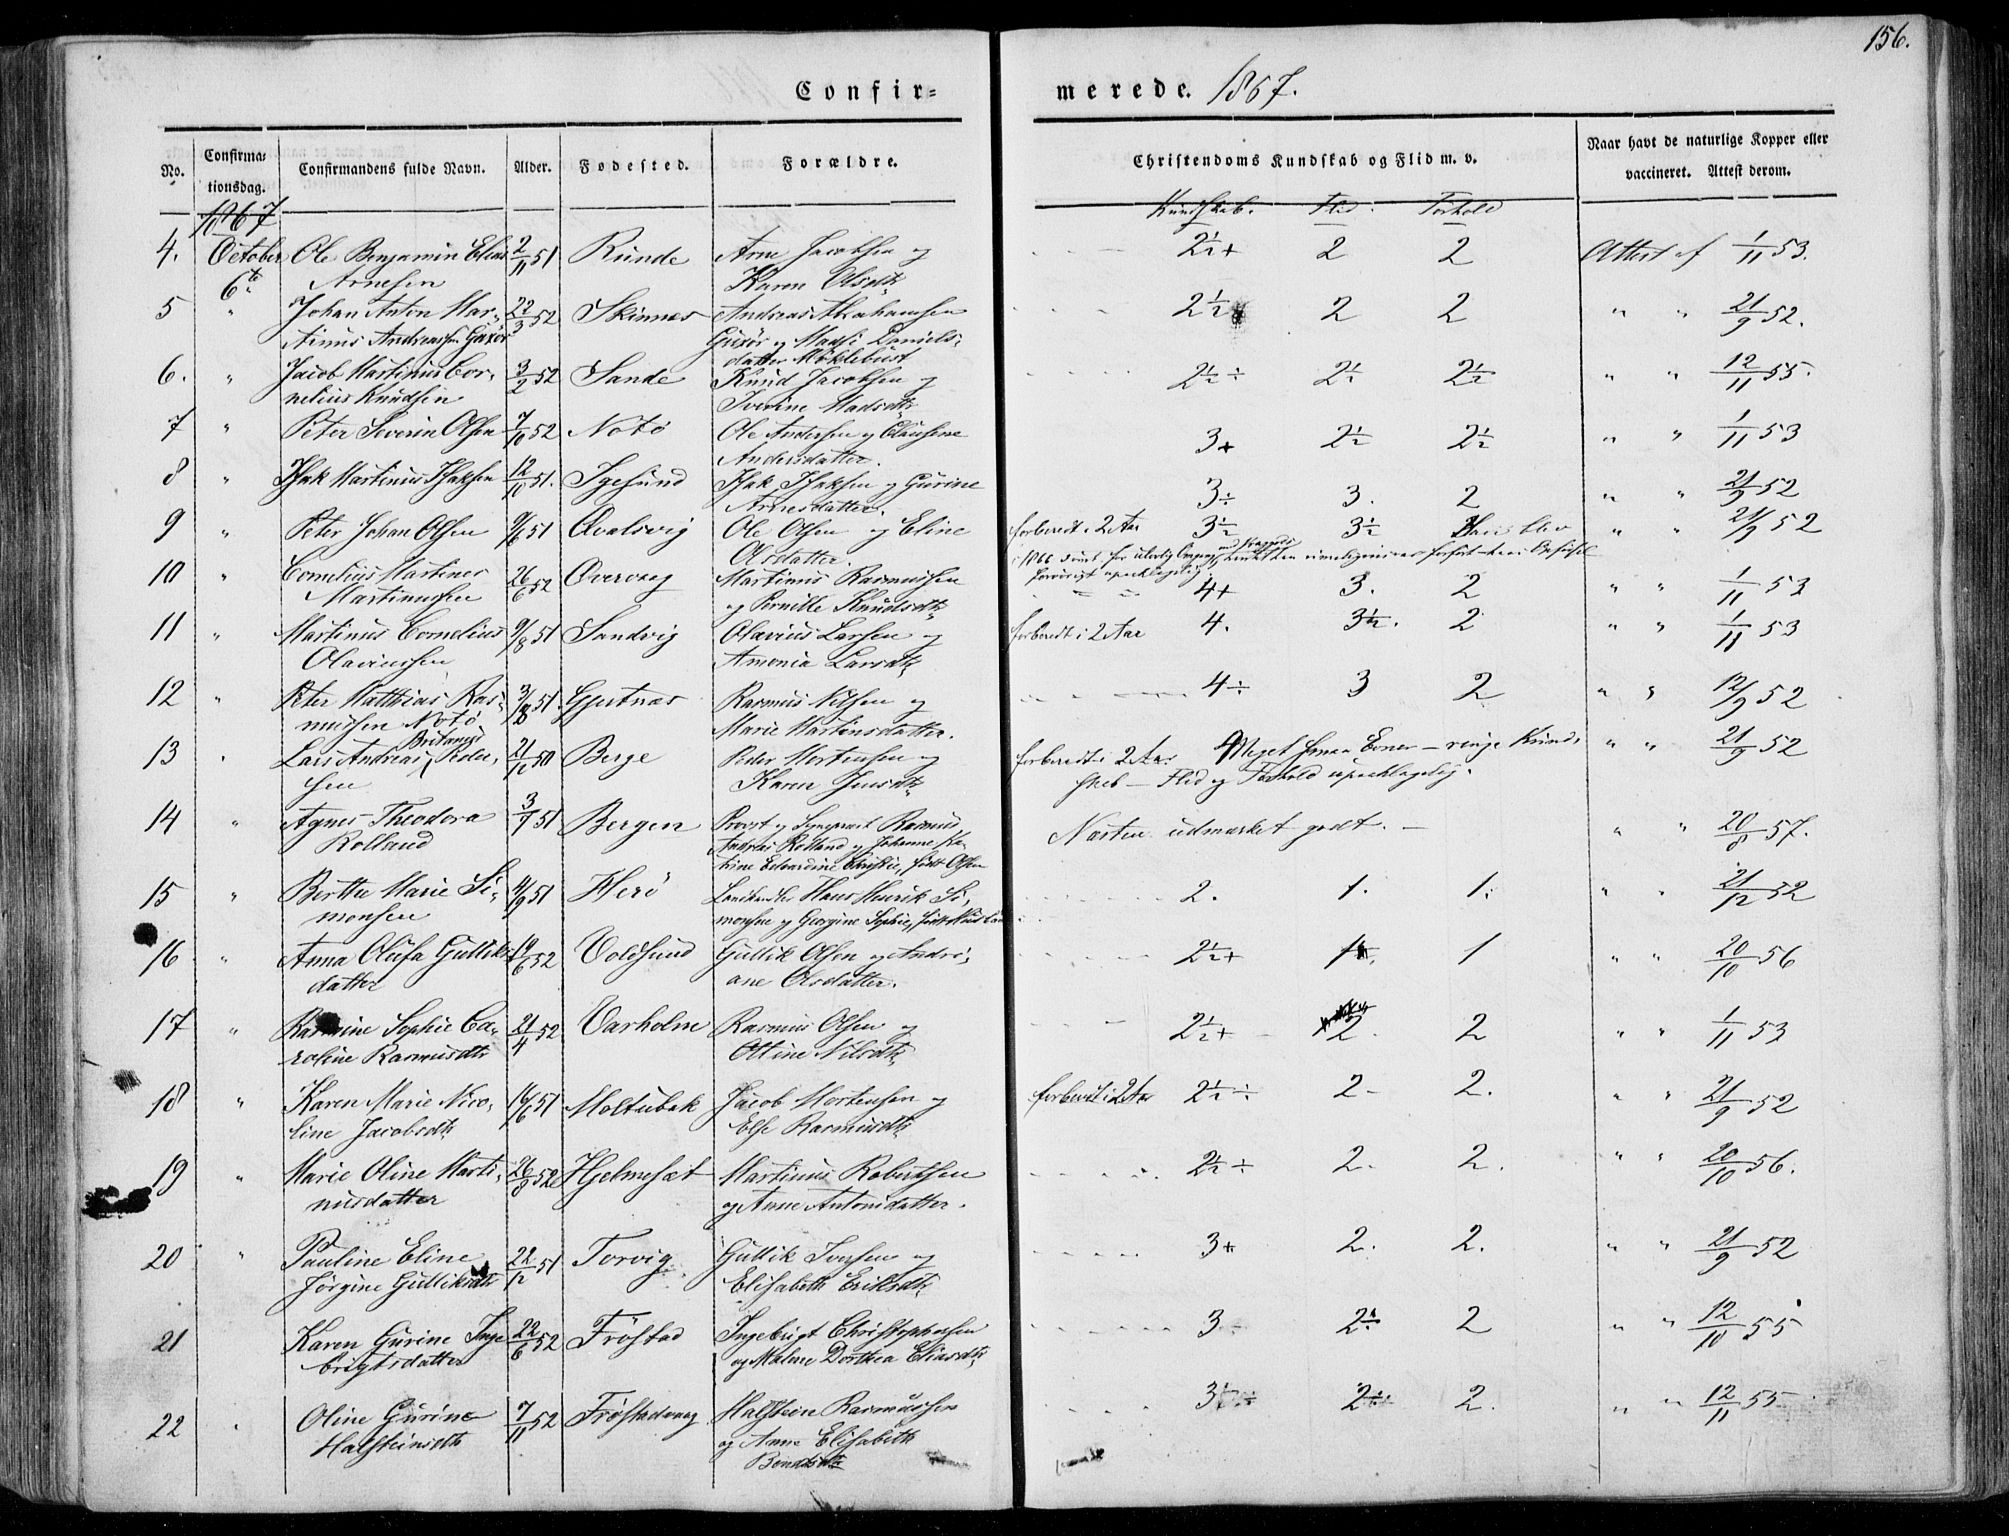 156.
Confir= merede. 1867.
No. Confirma- tionsdag. Confirmandens fulde Navn. Alder. Fødested. Forældre. Christendoms Kundskab og Flid m. v. Naar havt de naturlige Kopper eller
vaccineret. Attest derom.
1867 Kundskab. Flid. Forhold
4. October Ole Benjamin Elias 2/11 51 Runde Arne Jacobsen og 2½+ 2 2 Attest af 1/11 53.
6te Arnesen Karen Olsdtr
5 " Johan Anton Mar- 22/3 52 Skinnes Andreas Abrahamsen 2½ 2 2 " " 21/9 52.
tinus Andreassen Gurør Gurør og Madsi Daniels-
datter Møklebust
6. " Jacob Martinus Cor- 3/2 52 Sande Knud Jacobsen og 2½ ÷ 2½ 2½ " " 12/11 55.
nelius Knudsen Iverine Madsdtr
7 " Peter Severin Olsen 7/10 52 Notø Ole Andersen og Clausine 3+ 2½ 2½ " " 1/11 53
Andersdatter.
8 " Isak Martinus Isaksen 12/10 51. Igesund Isak Isaksen og Gurine 3÷ 3. 2 " " 21/9 52
Arnesdatter.
9 " Peter Johan Olsen 9/6 51 Qvalsvig Ole Olsen og Eline forberedt i 2 Aar 3½ 3½ Han blev " " 21/9 52
Olsdatter. i 1866
10 " Cornelius Martines 26/6 52 Overvaag Martinus Rasmussen forøvrigt upaaklagelig. 4+ 3. 2 " " 1/11 53
Martinussen og Pernille Knudsdtr
11 " Martinus Cornelius 9/8 51 Sandvig Olavius Larsen og forberedt i 2 Aar 4. 3½. 2 " " 1/11 53
Olaviussen Amonia Larsdtr
12 " Peter Matthias Ras- 3/8 51 Gjertnes Rasmus Nilsen og 4÷ 3 2 " " 12/9 52
mussen Notø Marie Martinsdatter.
13 " Lars Andreas Britanus Peder- 21/12 50 Berge Peder Mortensen og forberedt i 2 Aar Meget smaa Evner – ringe Kund- " " 21/9 52
sen Karen Jensdtr skab – Flid og Forhold upaaklagelig.
14 " Agnes Theodora 3/7 51 Bergen Provst og Sognepræst Rasmus Næsten udmærket godt. – " " 20/8 57.
Rolland Andreas Rolland og Johanne Ka-
trine Edvardine Christie, født Olsen
15 " Berthe Marie Si- 4/9 51 Herø Landhandler Hans Henrik Si- 2. 1. 1. " " 21/12 52
monsen monsen og Georgine Sophie, født
16 " Anna Olufa Gulliks- 19/6 52 Voldsund Gullik Olsen og Andri- 2½+ 1. 1 " " 20/10 56
datter ane Olsdatter.
17 " Rasmine Sophie Ca- 21/4 52 Varholm Rasmus Olsen og 2½+ 2. 2 " " 1/11 53
roline Rasmusdtr Ottine Nilsdtr
18 " Karen Marie Nico- 16/6 51 Moltubak Jacob Mortensen og forberedt i 2 Aar 2½ ÷ 2- 2. " " 21/9 52
line Jacobsdtr Else Rasmusdtr
19 " Marie Oline Marti- 26/8 52 Hjelmesæt Martinus Robertsen 2½ ÷ 2- 2. " " 20/10 56.
nusdatter og Anne Antonsdatter.
20 " Pauline Eline 22/12 51 Torvig Gullik Iversen og 3+ 2. 2. " " 21/9 52
Jørgine Gulliksdtr Elisabeth Eriksdtr
21 Karen Gurine Inge 22/6 52 Frøstad Ingebrigt Christophersen 3÷ 2÷ 2 " " 12/10 55
brigtsdatter og Malene Dorthea Eliasdtr
22 " Oline Gurine 7/11 52 Frøstadvaag Halstein Rasmussen 3½ 2÷ 2. " " 12/11 55
Halsteinsdtr og Anne Elisabeth
Bendtsdtr